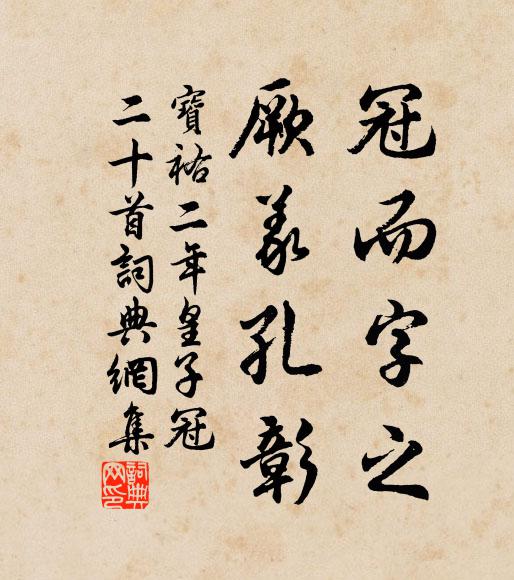 冠而字之
厥義孔彰
寶祐二年皇子冠
二十首詞典網集
詞典網印